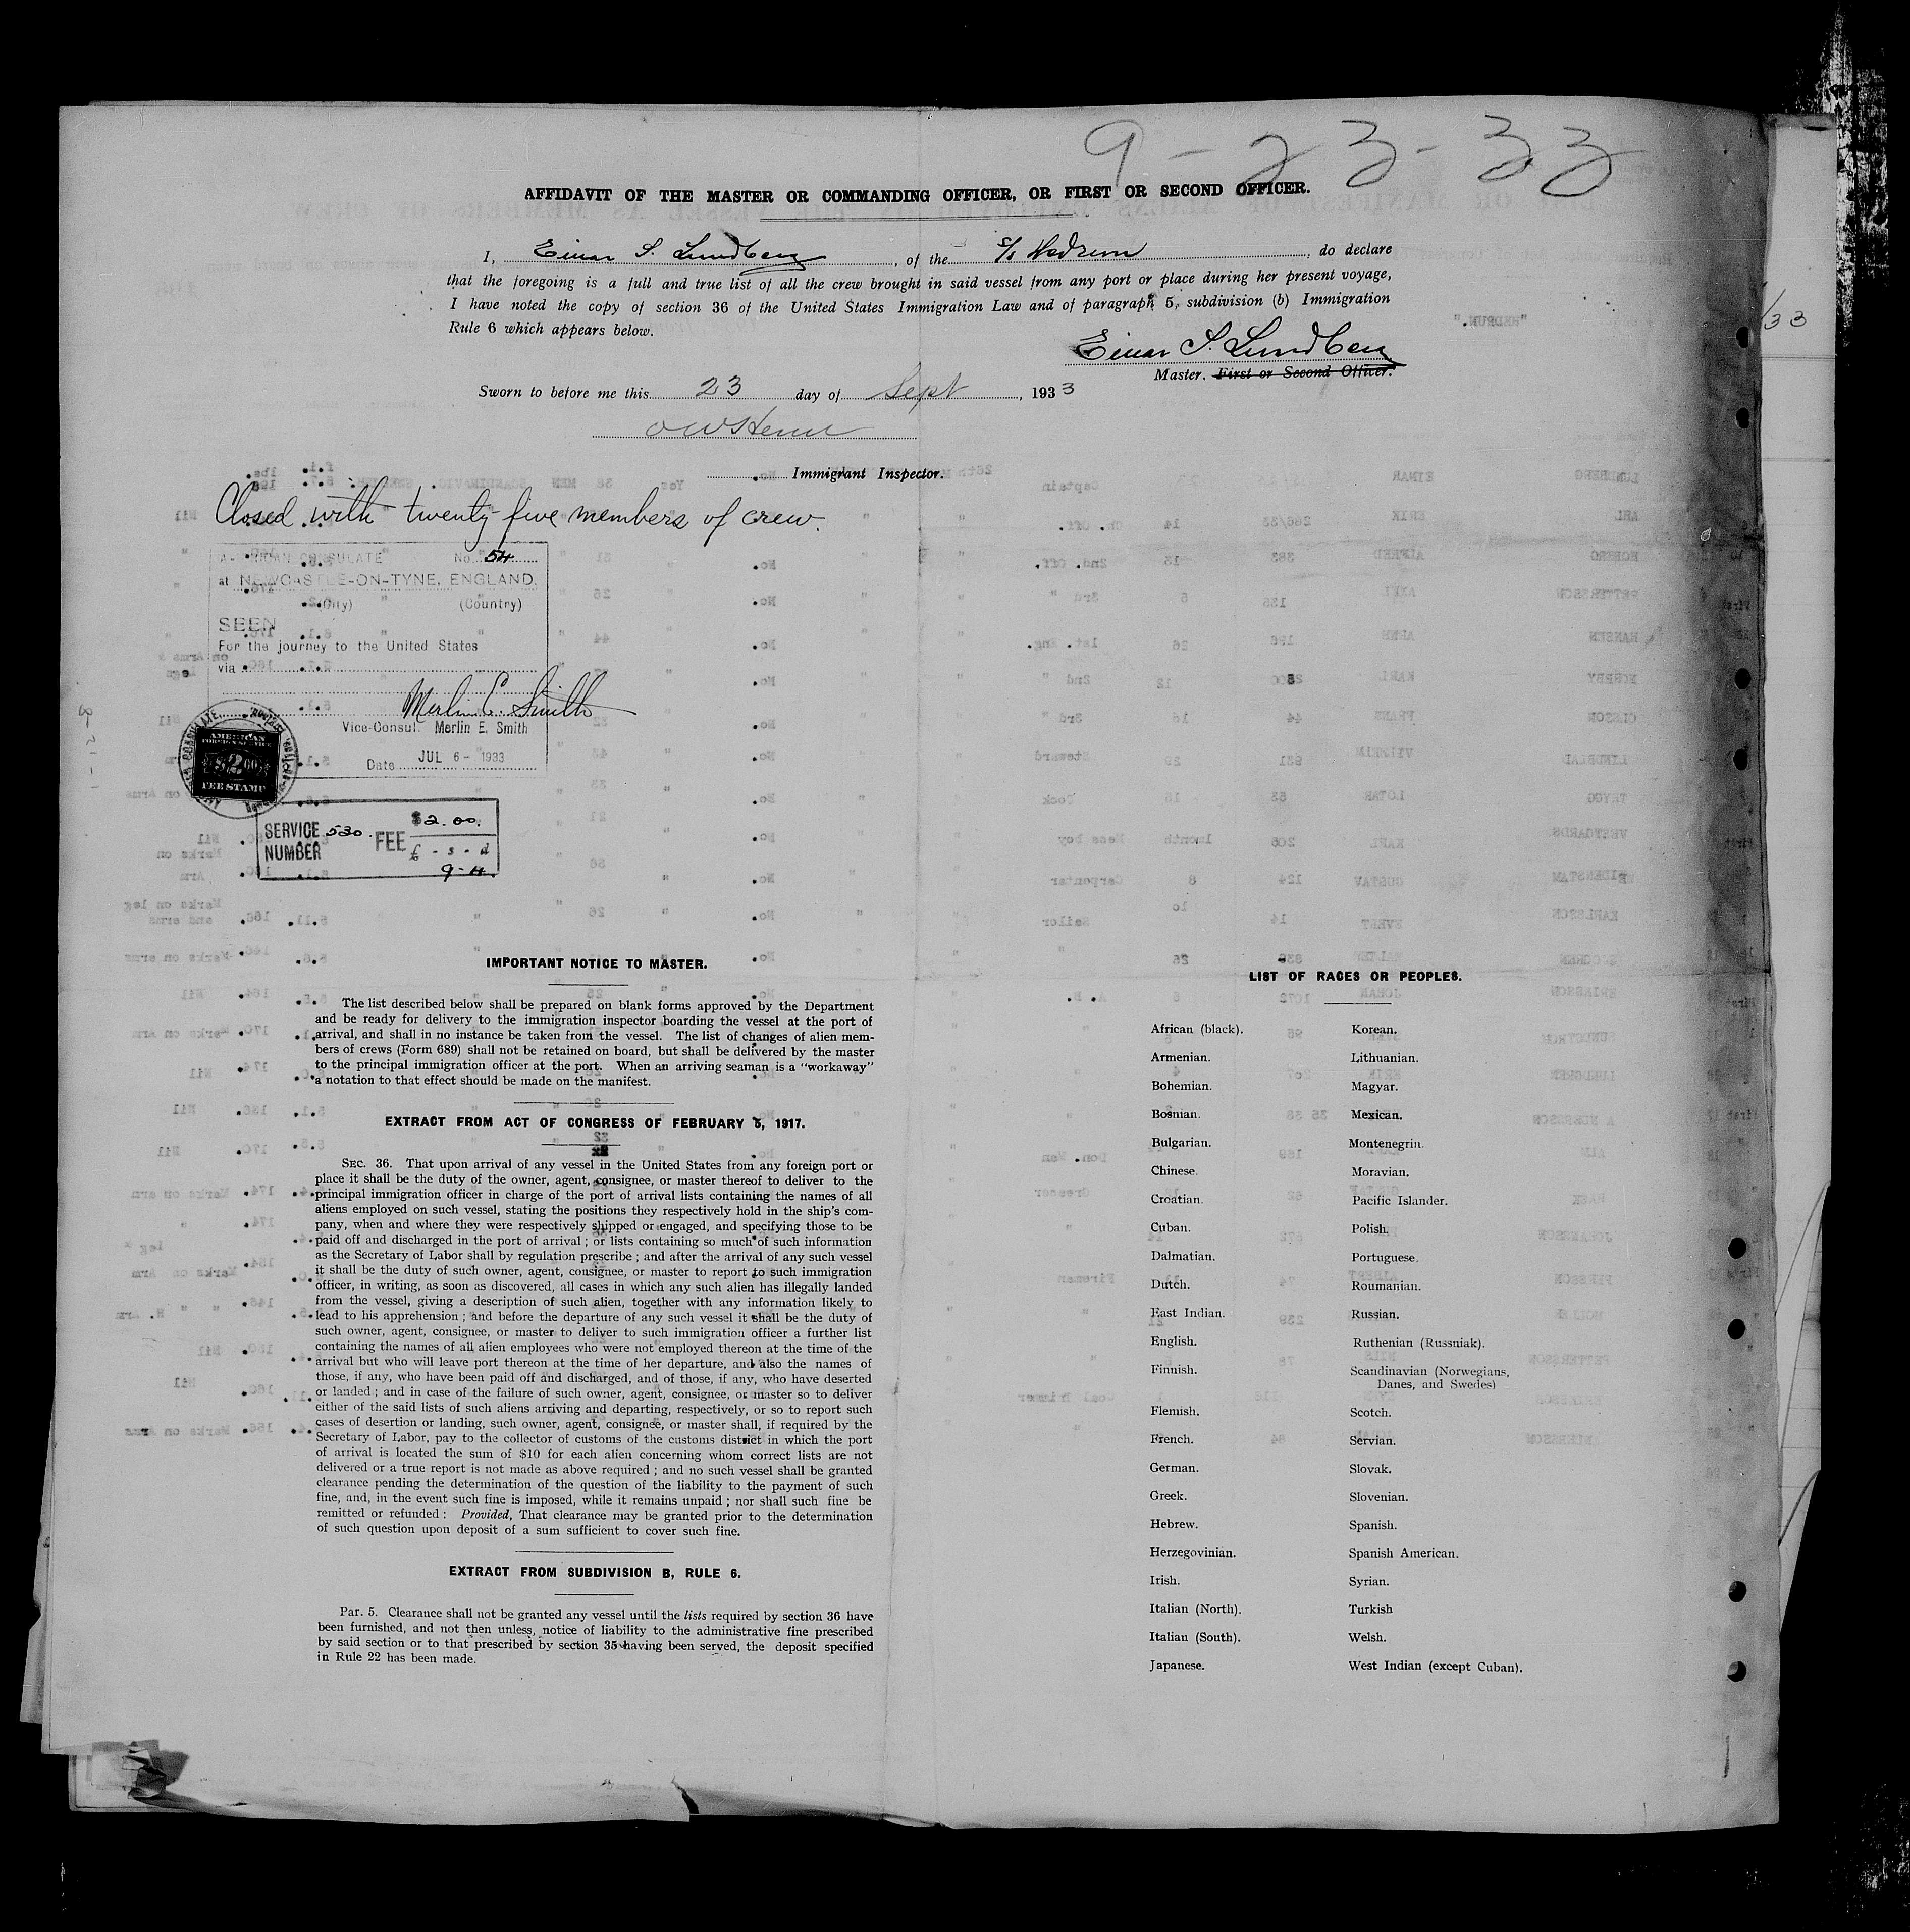 9-23-33
AFFIDAVIT OF THE MASTER OR COMMANDING OFFICER, OR FIRST OR SECOND OFFICER.
I, Einar S. Lundberg, of the S/S Hedrun, do declare
that the foregoing is a full and true list of all the crew brought in said vessel from any port or place during her present voyage,
I have noted the copy of section 36 of the United States Immigration Law and of paragraph 5, subdivision (b) Immigration
Rule 6 which appears below.
Einar S. Lundberg
Master, First or Second Officer.
Sworn to before me this 23 day of Sept, 1933
Immigrant Inspector.
Closed with twenty five members of crew.
AMERICAN CONSULATE No. 54
at NEWCASTLE-ON-TYNE, ENGLAND.
(City) (Country)
SEEN
For the journey to the United States
via
Merlin E. Smith
Vice-Consul. Merlin E. Smith
Date JUL 6 - 1933
AMERICAN
FOREIGN SERVICE
$2.00
FEE STAMP
SERVICE NUMBER 530. FEE $2.00.
£ - s - d
9-4.
IMPORTANT NOTICE TO MASTER.
The list described below shall be prepared on blank forms approved by the Department
and be ready for delivery to the immigration inspector boarding the vessel at the port of
arrival, and shall in no instance be taken from the vessel. The list of changes of alien mem-
bers of crews (Form 689) shall not be retained on board, but shall be delivered by the master
to the principal immigration officer at the port. When an arriving seaman is a "workaway"
a notation to that effect should be made on the manifest.
EXTRACT FROM ACT OF CONGRESS OF FEBRUARY 5, 1917.
SEC. 36. That upon arrival of any vessel in the United States from any foreign port or
place it shall be the duty of the owner, agent, consignee, or master thereof to deliver to the
principal immigration officer in charge of the port of arrival lists containing the names of all
aliens employed on such vessel, stating the positions they respectively hold in the ship's com-
pany, when and where they were respectively shipped or engaged, and specifying those to be
paid off and discharged in the port of arrival; or lists containing so much of such information
as the Secretary of Labor shall by regulation prescribe; and after the arrival of any such vessel
it shall be the duty of such owner, agent, consignee, or master to report to such immigration
officer, in writing, as soon as discovered, all cases in which any such alien has illegally landed
from the vessel, giving a description of such alien, together with any information likely to
lead to his apprehension; and before the departure of any such vessel it shall be the duty of
such owner, agent, consignee, or master to deliver to such immigration officer a further list
containing the names of all alien employees who were not employed thereon at the time of the
arrival but who will leave port thereon at the time of her departure, and also the names of
those, if any, who have been paid off and discharged, and of those, if any, who have deserted
or landed; and in case of the failure of such owner, agent, consignee, or master so to deliver
either of the said lists of such aliens arriving and departing, respectively, or so to report such
cases of desertion or landing, such owner, agent, consignee, or master shall, if required by the
Secretary of Labor, pay to the collector of customs of the customs district in which the port
of arrival is located the sum of $10 for each alien concerning whom correct lists are not
delivered or a true report is not made as above required; and no such vessel shall be granted
clearance pending the determination of the question of the liability to the payment of such
fine, and, in the event such fine is imposed, while it remains unpaid; nor shall such fine be
remitted or refunded: Provided, That clearance may be granted prior to the determination
of such question upon deposit of a sum sufficient to cover such fine.
EXTRACT FROM SUBDIVISION B, RULE 6.
Par. 5. Clearance shall not be granted any vessel until the lists required by section 36 have
been furnished, and not then unless, notice of liability to the administrative fine prescribed
by said section or to that prescribed by section 35 having been served, the deposit specified
in Rule 22 has been made.
LIST OF RACES OR PEOPLES.
African (black). Korean.
Armenian. Lithuanian.
Bohemian. Magyar.
Bosnian. Mexican.
Bulgarian. Montenegrin.
Chinese. Moravian.
Croatian. Pacific Islander.
Cuban. Polish.
Dalmatian. Portuguese.
Dutch. Roumanian.
East Indian. Russian.
English. Ruthenian (Russniak).
Finnish. Scandinavian (Norwegians,
Danes, and Swedes)
Flemish. Scotch.
French. Servian.
German. Slovak.
Greek. Slovenian.
Hebrew. Spanish.
Herzegovinian. Spanish American.
Irish. Syrian.
Italian (North). Turkish
Italian (South). Welsh.
Japanese. West Indian (except Cuban).